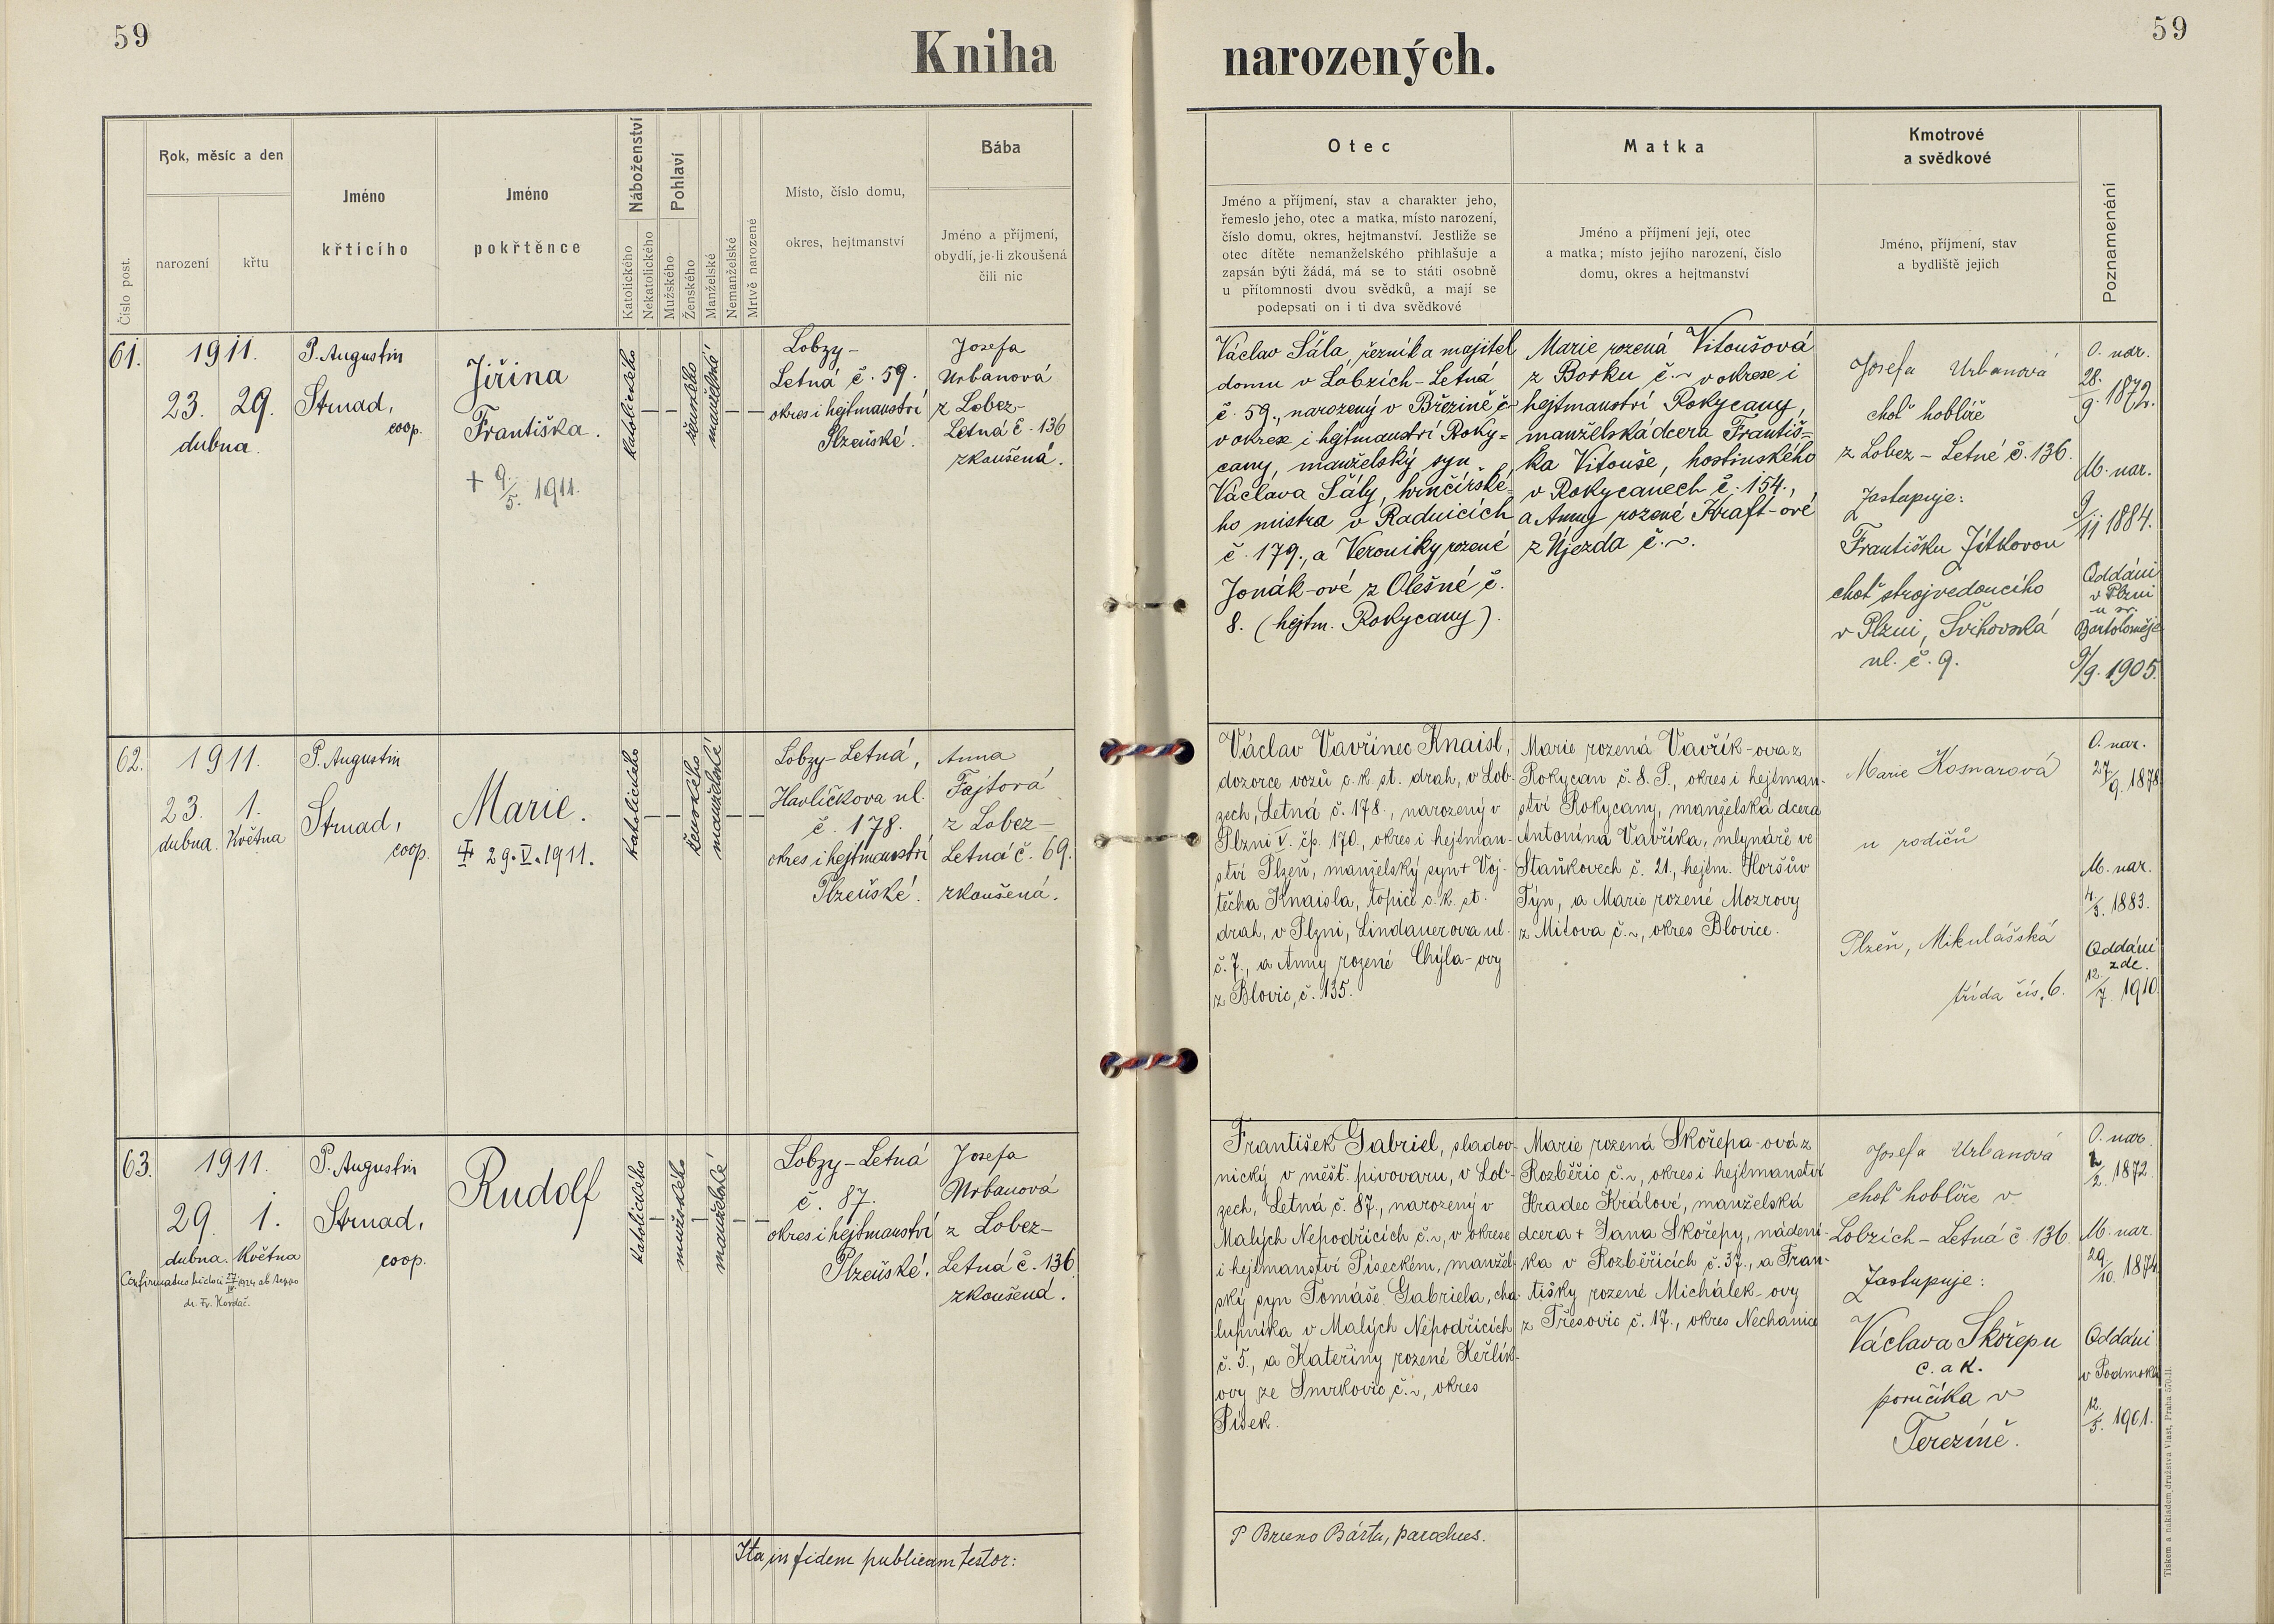 59
59
Kniha narozených.
Číslo post.
Rok, měsíc a den
narození
křtu
Jméno
křticího
Jméno
pokřtěnce
Náboženství
Katolického
Nekatolického
Pohlaví
Mužského
Ženského
Manželské
Nemanželské
Mrtvě narozené
Místo, číslo domu,
okres, hejtmanství
Bába
Jméno a příjmení,
obydlí, je-li zkoušená
čili nic
Otec
Jméno a příjmení, stav a charakter jeho,
řemeslo jeho, otec a matka, místo narození,
číslo domu, okres, hejtmanství. Jestliže se
otec dítěte nemanželského přihlašuje a
zapsán býti žádá, má se to státi osobně
u přítomnosti dvou svědků, a mají se
podepsati on i ti dva svědkové
Matka
Jméno a příjmení její, otec
a matka; místo jejího narození, číslo
domu, okres a hejtmanství
Kmotrové
a svědkové
Jméno, příjmení, stav
a bydliště jejich
Poznamenání
61.
1911.
23. 29.
dubna.
P. Augustin
Strnad,
coop.
Jiřina
Františka.
+ 9./5. 1911.
katolického
ženského
manželské
Lobzy-
Letná č. 59.
okres i hejtmanství
Plzeňské.
Josefa
Urbanová
z Lobez-
Letná č. 136
zkoušená.
Václav Šála, řezník a majitel
domu v Lobzích-Letná
č. 59., narozený v Březině č.
v okrese i hejtmanství Roky=
cany, manželský syn
Václava Šály, hrnčířské=
ho mistra v Radnicích
č. 179., a Veroniky rozené
Jonák-ové z Olešné č.
8. (hejtm. Rokycany).
Marie rozená Vitoušová
z Borku č. ~ v okrese i
hejtmanství Rokycany,
manželská dcera Františ=
ka Vitouše, hostinského
v Rokycanech č. 154.,
a Anny rozené Kraft-ové
z Újezda č. ~.
Josefa Urbanová
choť hoblíře
z Lobez - Letné č. 136.
Zastupuje:
Františku Jítkovou
choť strojvedoucího
v Plzni, Švihovská
ul. č. 9.
O. nar.
28./9. 1872.
M. nar.
9/11 1884.
Oddáni
v Plzni
u sv.
Bartoloměje
9/9. 1905.
62.
1911.
23. 1.
dubna. Května
P. Augustin
Strnad,
coop.
Marie.
29. V. 1911.
katolického
ženského
manželské
Lobzy-Letná,
Havlíčkova ul.
č. 178.
okres i hejtmanství
Plzeňské.
Anna
Fajtová
z Lobez-
Letná č. 69.
zkoušená.
Václav Vavřinec Knaisl,
dozorce vozů c. k. st. drah, v Lob-
zech, Letná č. 178., narozený v
Plzni V. čp. 170., okres i hejtman-
ství Plzeň, manželský syn + Voj-
těcha Knaisla, topiče c. k. st.
drah, v Plzni, Lindauerova ul.
č. 7., a Anny rozené Chýla-ovy
z Blovic, č. 135.
Marie rozená Vavřík-ova z
Rokycan č. 8. P., okres i hejtman-
ství Rokycany, manželská dcera
Antonína Vavříka, mlynáře ve
Staňkovech č. 21., hejtm. Horšův
Týn, a Marie rozené Mozrovy
z Mítova č. ~, okres Blovice.
Marie Kosnarová
u rodičů
Plzeň, Mikulášská
třída čís. 6.
O. nar.
27./9. 1878
M. nar.
4./3. 1883.
Oddáni
zde.
12./7. 1910.
63.
1911.
29. 1.
dubna. Května
Confirmatus
dr. Fr. Kordač.
P. Augustin
Strnad,
coop.
Rudolf
katolického
mužského
manželské
Lobzy-Letná
č. 87.
okres i hejtmanství
Plzeňské.
Josefa
Urbanová
z Lobez-
Letná č. 136
zkoušená.
František Gabriel, sladov-
nický v měšť. pivovaru, v Lob-
zech, Letná č. 87., narozený v
Malých Nepodřicích č. ~, v okrese
i hejtmanství Píseckém, manžel-
ský syn Tomáše Gabriela, cha-
lupníka v Malých Nepodřicích
č. 5., a Kateřiny rozené Keřlík-
ovy ze Smrkovic č. ~, okres
Písek.
Marie rozená Skořepa-ová z
Rozběřic č. ~, okres i hejtmanství
Hradec Králové, manželská
dcera + Jana Skořepy, nádení-
ka v Rozběřicích č. 37., a Fran-
tišky rozené Michálek-ovy
z Třesovic č. 17., okres Nechanice
Josefa Urbanová
choť hoblíře v
Lobzích - Letná č. 136.
Zastupuje:
Václava Skořepu
c. a k.
poručíka v
Terezíně.
O. nar.
2/2. 1872
M. nar.
29./10. 1874
Oddáni
v Podmokl
12./5. 1901.
Ita in fidem publicam testor:
P Bruno Bárta, parochus.
Tiskem a nákladem družstva Vlast, Praha 570-II.